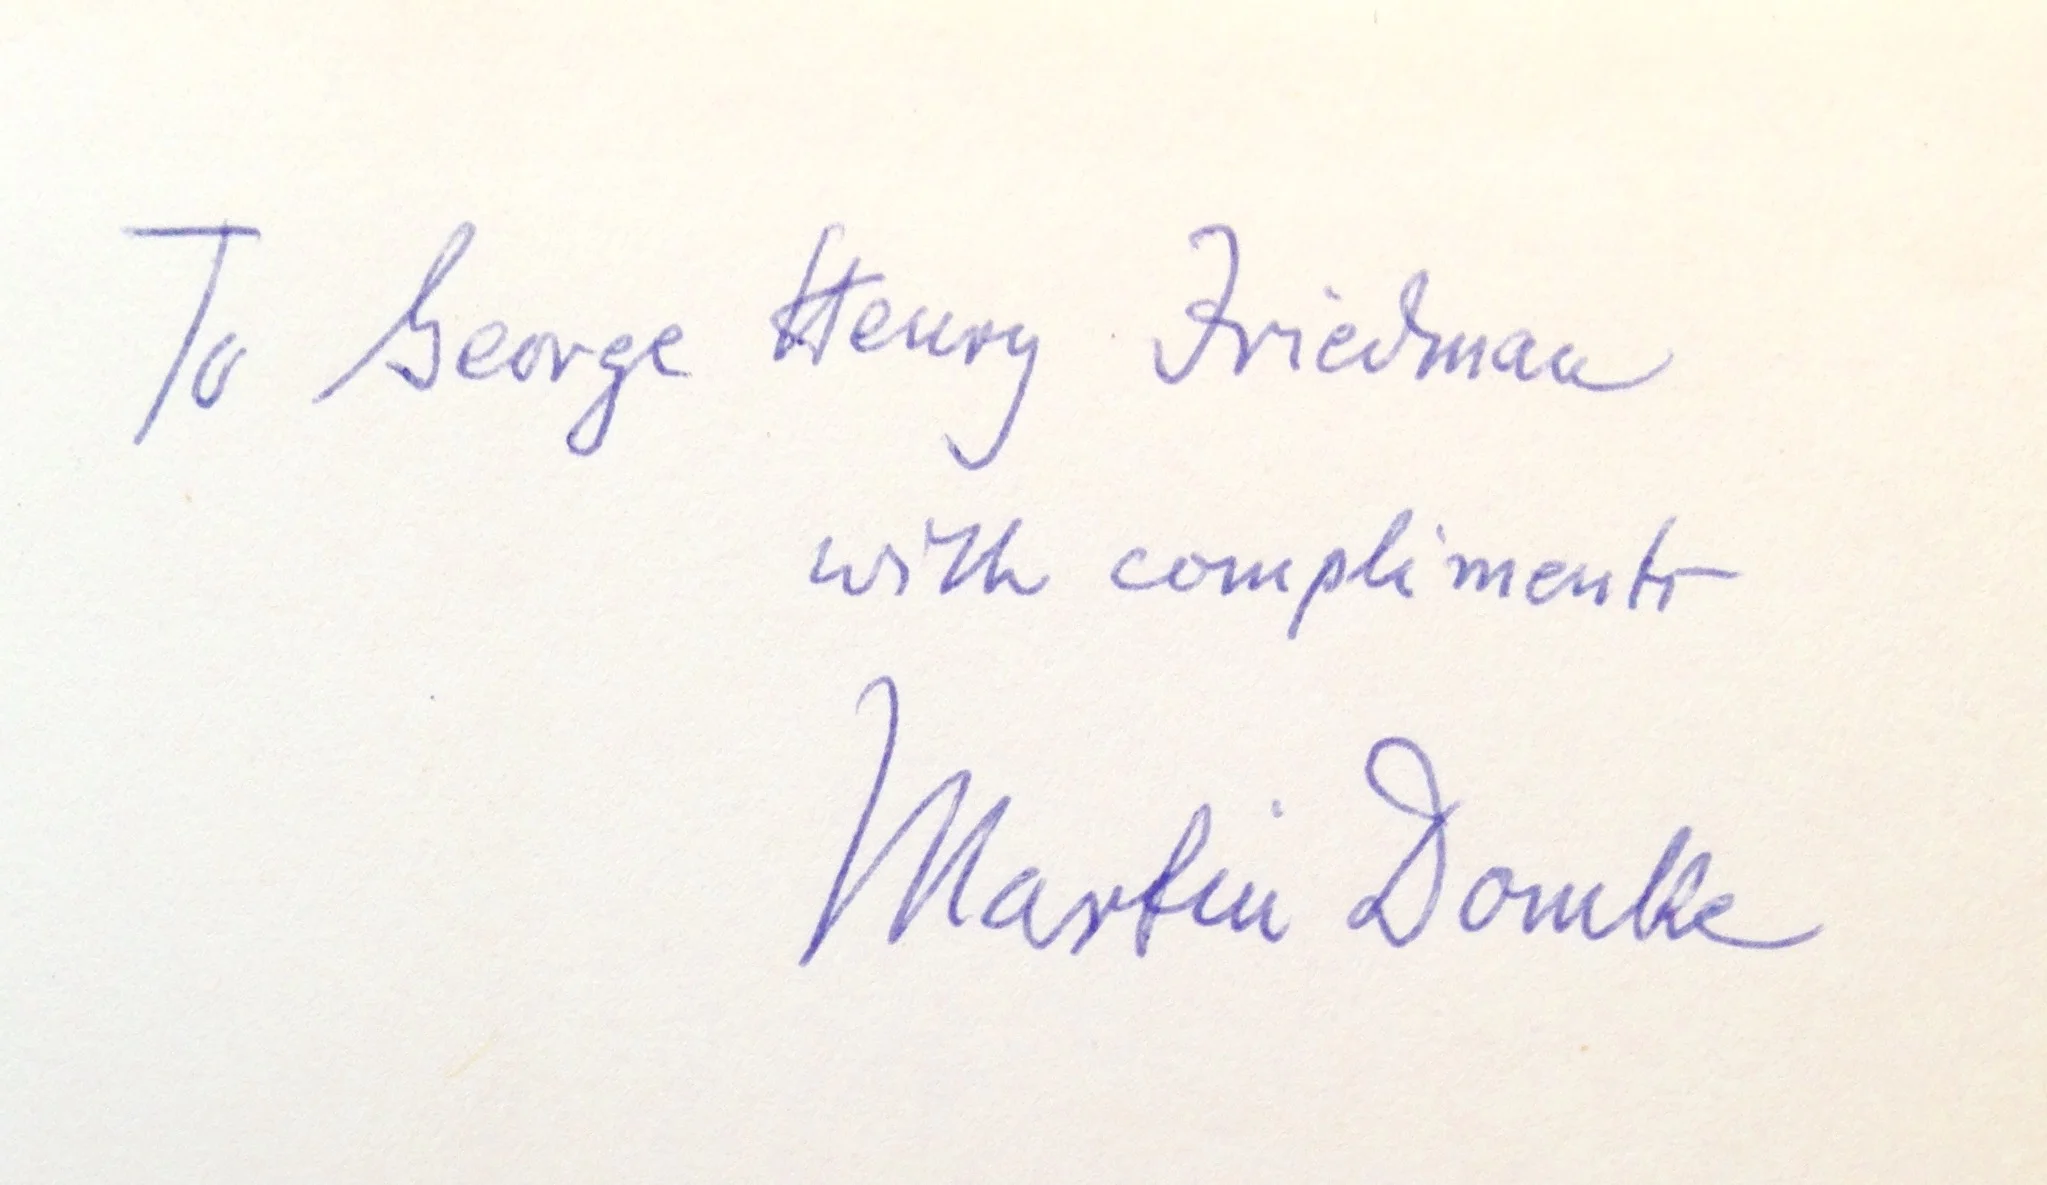 To George Henry Friedman
with compliments
Martin Domke